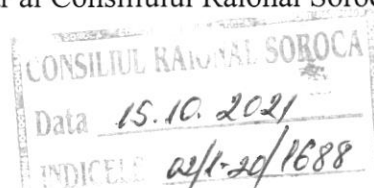 al Consiliului Raional Soroca
CONSILIUL RAIONAL SOROCA
Data 15.10.2021
INDICELE 02/1-20/1688